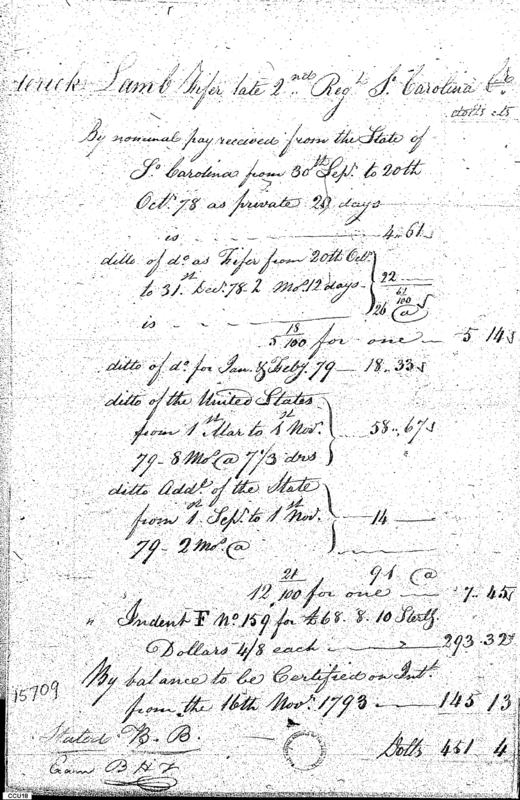 Lamb Fifer late 2nd Regt So. Carolina Cr.
dolls cts
By nominal pay received from the State of
So Carolina from 30th Sepr. to 20th
Octr. 78 as private 20 days
is 4..61
ditto of do as Fifer from 20th Octr.
to 31st Decr. 78. 2 Mos. 12 days 22
61/100
26 @
is 5 18/100 for one 5 14
ditto of do for Jan. & Feby. 79 18..33
ditto of the United States
from 1st Mar to 1st Novr. 58..67
79 - 8 Mos. @ 7 1/3 drs
ditto Addl. of the State
from 1st Sepr. to 1st Novr. 14
79 - 2 Mos. @
91 @
12 21/100 for one 7..45
" Indent F No. 159 for £68. 8. 10 Sterlg.
Dollars 4/8 each 293..32
By balance to be Certified on Intt.
from the 16th Novr. 1793 145 13
15709
Stated B. B.
Dolls 451 4
Exam B H
CCU18